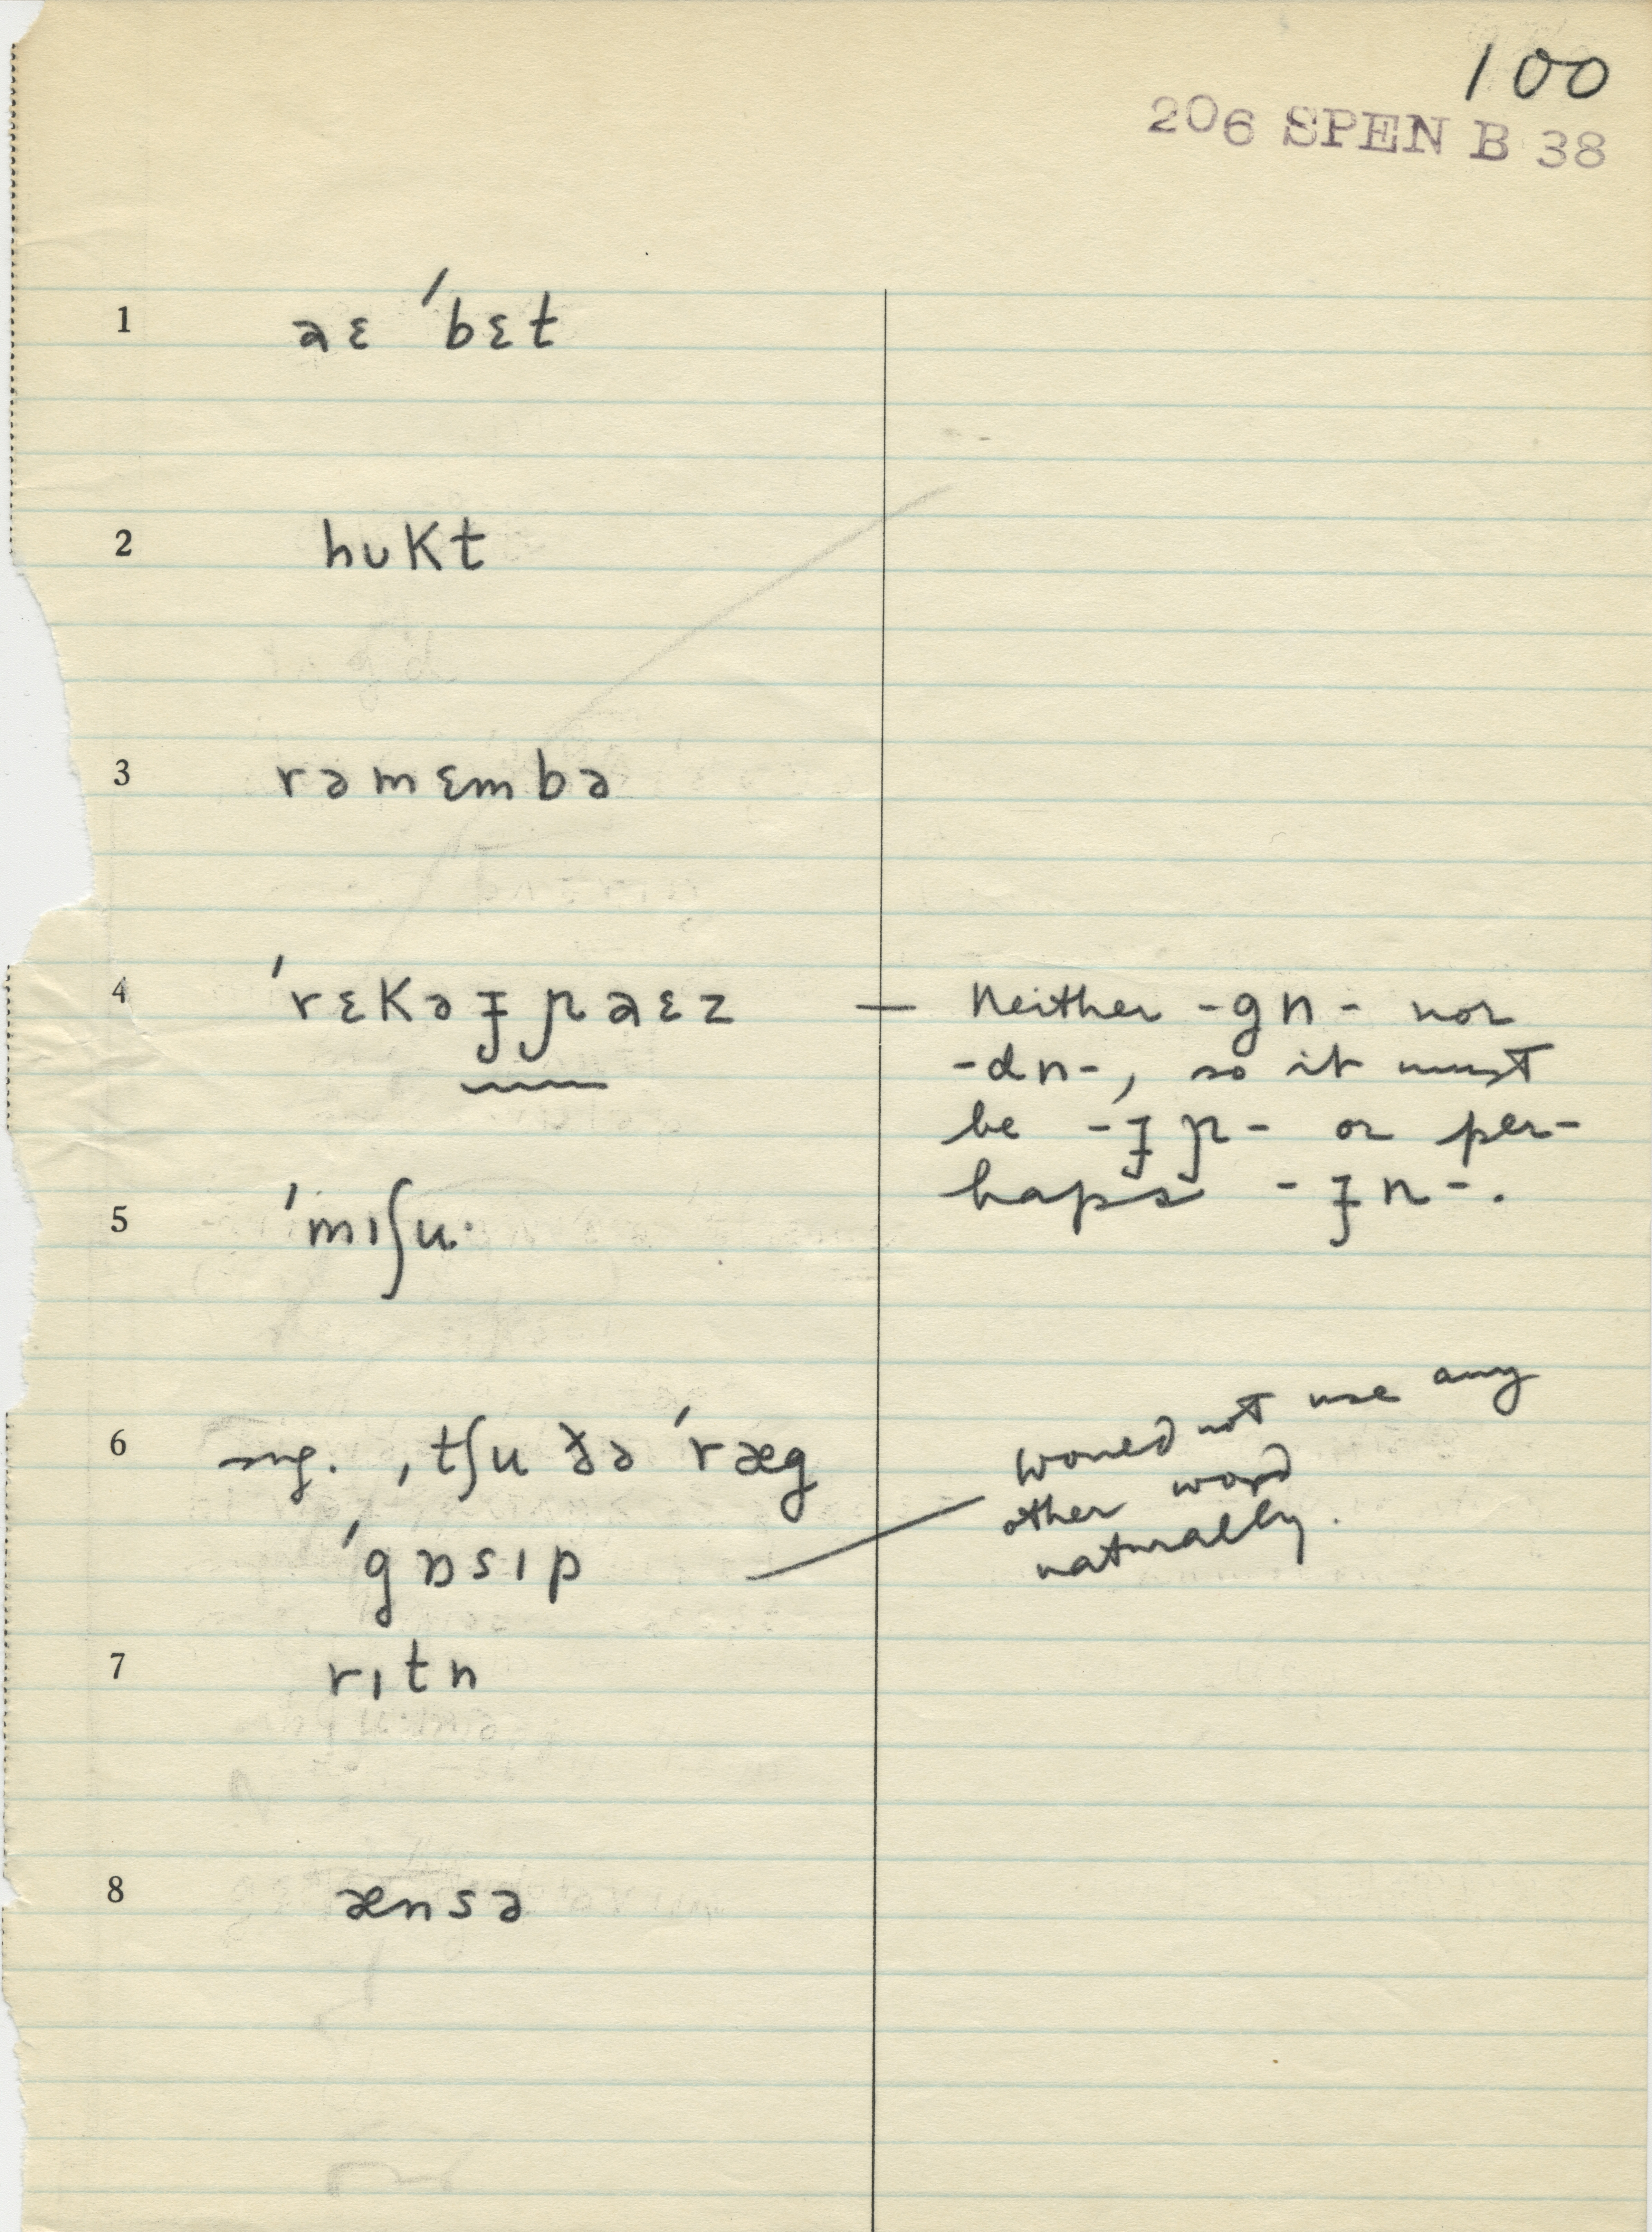 100
206 SPEN B 38
1 aɛ ˈbɛt
2 hʊkt
3 rəmɛmbə
4 ˈrɛkəɟɲaɛz — neither -gn- nor
-dn-, so it must
be -ɟɲ- or per-
haps -ɟn-.
5 ˈmɪʃu·
6 sug. ˌtʃu ðə ˈræg
ˈgɒsɪp — would not use any
other word
naturally.
7 rɪtn
8 ænsə